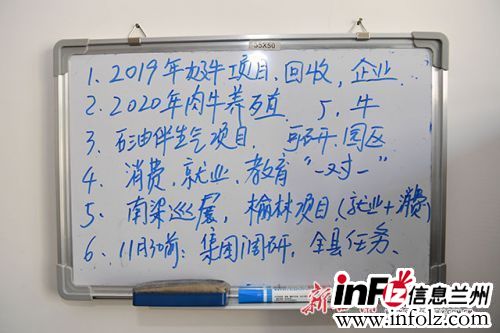 35X50
1. 2019年奶牛项目、回收,企业
2. 2020年肉牛养殖 5,牛
3. 石油伴生气项目, 可研.园区
4. 消费,就业、教育"一对一"
5. 南梁巡展,榆林项目(就业+消费)
6. 11月30前:集团调研,全县任务、
新
infLz信息兰州
www.infolz.com